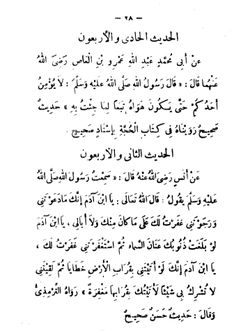 — ٢٨ —
الحديث الحادى والأربعون
عَنْ أَبِي مُحَمَّدٍ عَبْدِ اللهِ عَمْرِو بْنِ الْعَاصِ رَضِيَ اللهُ
عَنْهُمَا قَالَ : « قَالَ رَسُولُ اللهِ صَلَّى اللهُ عَلَيْهِ وَسَلَّمَ : لَا يُؤْمِنُ
أَحَدُكُمْ حَتَّى يَكُونَ هَوَاهُ تَبَعًا لِمَا جِئْتُ بِهِ » حَدِيثٌ
صَحِيحٌ رَوَيْنَاهُ فِي كِتَابِ الْحُجَّةِ بِإِسْنَادٍ صَحِيحٍ .
الحديث الثانى والأربعون
عَنْ أَنَسٍ رَضِيَ اللهُ عَنْهُ قَالَ « سَمِعْتُ رَسُولَ اللهِ صَلَّى اللهُ
عَلَيْهِ وَسَلَّمَ يَقُولُ : قَالَ اللهُ تَعَالَى : يَا ابْنَ آدَمَ إِنَّكَ مَا دَعَوْتَنِي
وَرَجَوْتَنِي غَفَرْتُ لَكَ عَلَى مَا كَانَ مِنْكَ وَلَا أُبَالِي ، يَا ابْنَ آدَمَ
لَوْ بَلَغَتْ ذُنُوبُكَ عَنَانَ السَّمَاءِ ثُمَّ اسْتَغْفَرْتَنِي غَفَرْتُ لَكَ ،
يَا ابْنَ آدَمَ إِنَّكَ لَوْ أَتَيْتَنِي بِقُرَابِ الْأَرْضِ خَطَايَا ثُمَّ لَقِيتَنِي
لَا تُشْرِكُ بِي شَيْئًا لَأَتَيْتُكَ بِقُرَابِهَا مَغْفِرَةً » رَوَاهُ التِّرْمِذِيُّ
وَقَالَ : حَدِيثٌ حَسَنٌ صَحِيحٌ